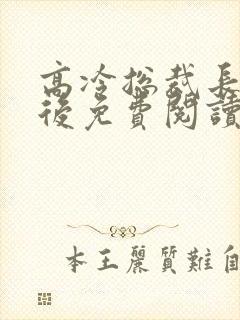 高冷总裁長
後免費閱讀
本王麗質難自